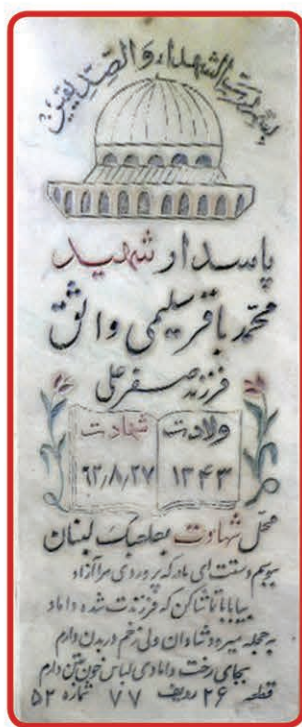 بسم رب الشهداء والصدیقین
پاسدار شهید
محمد باقر سلیمی واثق
فرزند صفر علی
ولادت شهادت
۱۳۴۳ ۶۲٫۸٫۲۷
محل شهادت بعلبک لبنان
ببوسم دستت ای مادر که پروردی مرا آزاد
بیا بابا تماشا کن که فرزندت شده داماد
به حجله میروم شادان ولی زخم در بدن دارم
بجای رخت دامادی لباس خون بتن دارم
قطعه ۲۶ ردیف ۷۷ شماره ۵۲